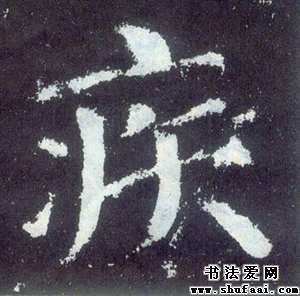 疾
书法爱网
www.shufaai.com